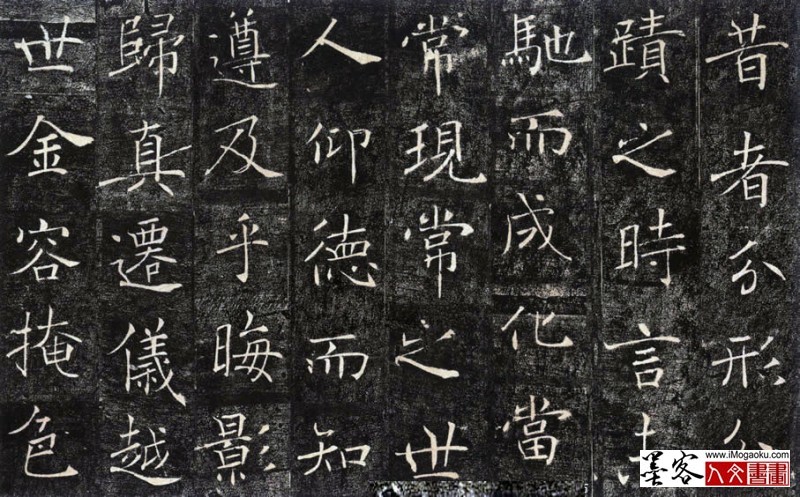 昔者分形分
蹟之時言未
馳而成化當
常現常之世
人仰德而知
遵及乎晦影
歸真遷儀越
世金容掩色
www.iMogaoku.com
墨客人文書畫